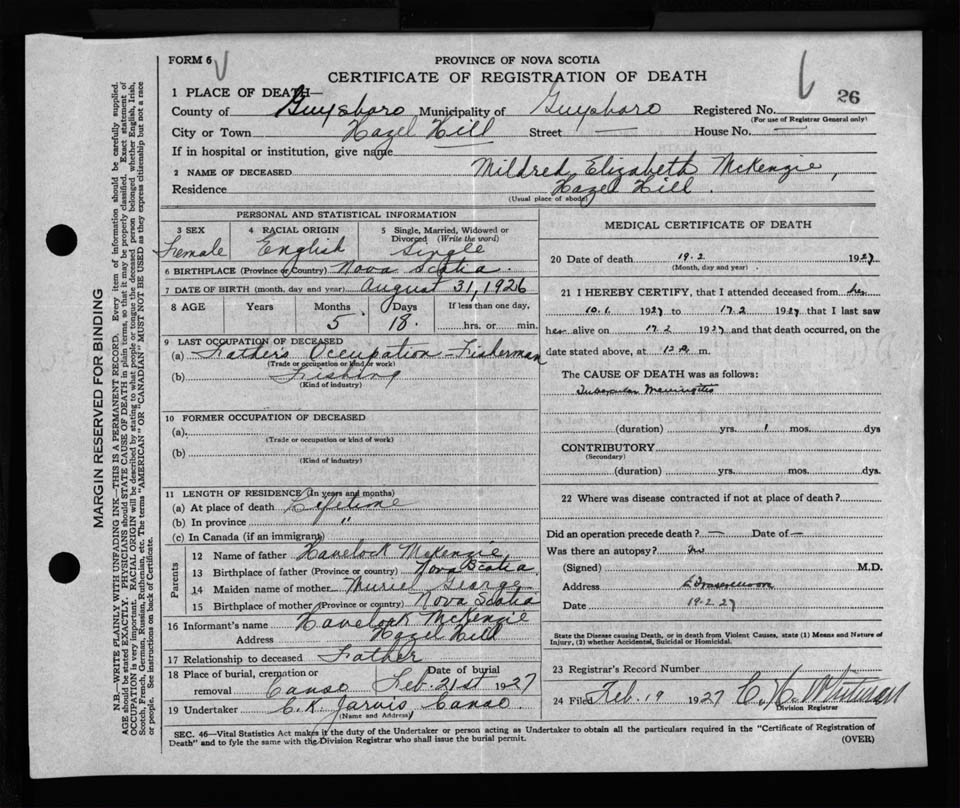 FORM 6
PROVINCE OF NOVA SCOTIA
CERTIFICATE OF REGISTRATION OF DEATH
26
1 PLACE OF DEATH—
County of Guysboro Municipality of Guysboro Registered No.
(For use of Registrar General only)
City or Town Hazel Hill Street — House No. —
If in hospital or institution, give name
2 NAME OF DECEASED Mildred Elizabeth McKenzie,
Residence Hazel Hill.
(Usual place of abode)
PERSONAL AND STATISTICAL INFORMATION
3 SEX 4 RACIAL ORIGIN 5 Single, Married, Widowed or
Divorced (Write the word)
Female English Single
6 BIRTHPLACE (Province or Country) Nova Scotia.
7 DATE OF BIRTH (month, day and year) August 31, 1926
8 AGE Years Months Days If less than one day,
5 18. hrs. or min.
9 LAST OCCUPATION OF DECEASED
(a) Father's Occupation-Fisherman
(Trade or occupation or kind of work)
(b) Fishing
(Kind of industry)
10 FORMER OCCUPATION OF DECEASED
(a)
(Trade or occupation or kind of work)
(b)
(Kind of industry)
11 LENGTH OF RESIDENCE (In years and months)
(a) At place of death Lifetime
(b) In province "
(c) In Canada (if an immigrant)
Parents
12 Name of father Havelock McKenzie,
13 Birthplace of father (Province or country) Nova Scotia.
14 Maiden name of mother Muriel George
15 Birthplace of mother (Province or country) Nova Scotia
16 Informant's name Havelock McKenzie
Address Hazel Hill
17 Relationship to deceased Father
18 Place of burial, cremation or Date of burial
removal Canso Feb. 21st 1927
19 Undertaker C.K. Jarvis Canso.
(Name and Address)
MEDICAL CERTIFICATE OF DEATH
20 Date of death 19.2 1927
(Month, day and year)
21 I HEREBY CERTIFY, that I attended deceased from her
10.1 1927 to 17.2 1927 that I last saw
her alive on 17.2 1927 and that death occurred, on the
date stated above, at 12 a. m.
The CAUSE OF DEATH was as follows:
Tubercular Meningitis
(duration) yrs. 1 mos. dys
CONTRIBUTORY
(Secondary)
(duration) yrs. mos. dys.
22 Where was disease contracted if not at place of death?
Did an operation precede death? — Date of —
Was there an autopsy? No
(Signed) M.D.
Address
Date 19-2-27
State the Disease causing Death, or in death from Violent Causes, state (1) Means and Nature of
Injury, (2) whether Accidental, Suicidal or Homicidal.
23 Registrar's Record Number
24 Filed Feb. 19 1927
Division Registrar
SEC. 46—Vital Statistics Act makes it the duty of the Undertaker or person acting as Undertaker to obtain all the particulars required in the "Certificate of Registration of
Death" and to fyle the same with the Division Registrar who shall issue the burial permit.
(OVER)
MARGIN RESERVED FOR BINDING
N.B.—WRITE PLAINLY WITH UNFADING INK—THIS IS A PERMANENT RECORD. Every item of information should be carefully supplied.
AGE should be stated EXACTLY. PHYSICIANS should STATE CAUSE OF DEATH in plain terms, so that it may be properly classified. Exact statement of
OCCUPATION is very important. RACIAL ORIGIN will be described by stating to what people or tongue the deceased person belonged whether English, Irish,
Scotch, French, German, Russian, Ruthenian, etc. The terms "AMERICAN" OR "CANADIAN" MUST NOT BE USED as they express citizenship but not a race
or people. See instructions on back of Certificate.